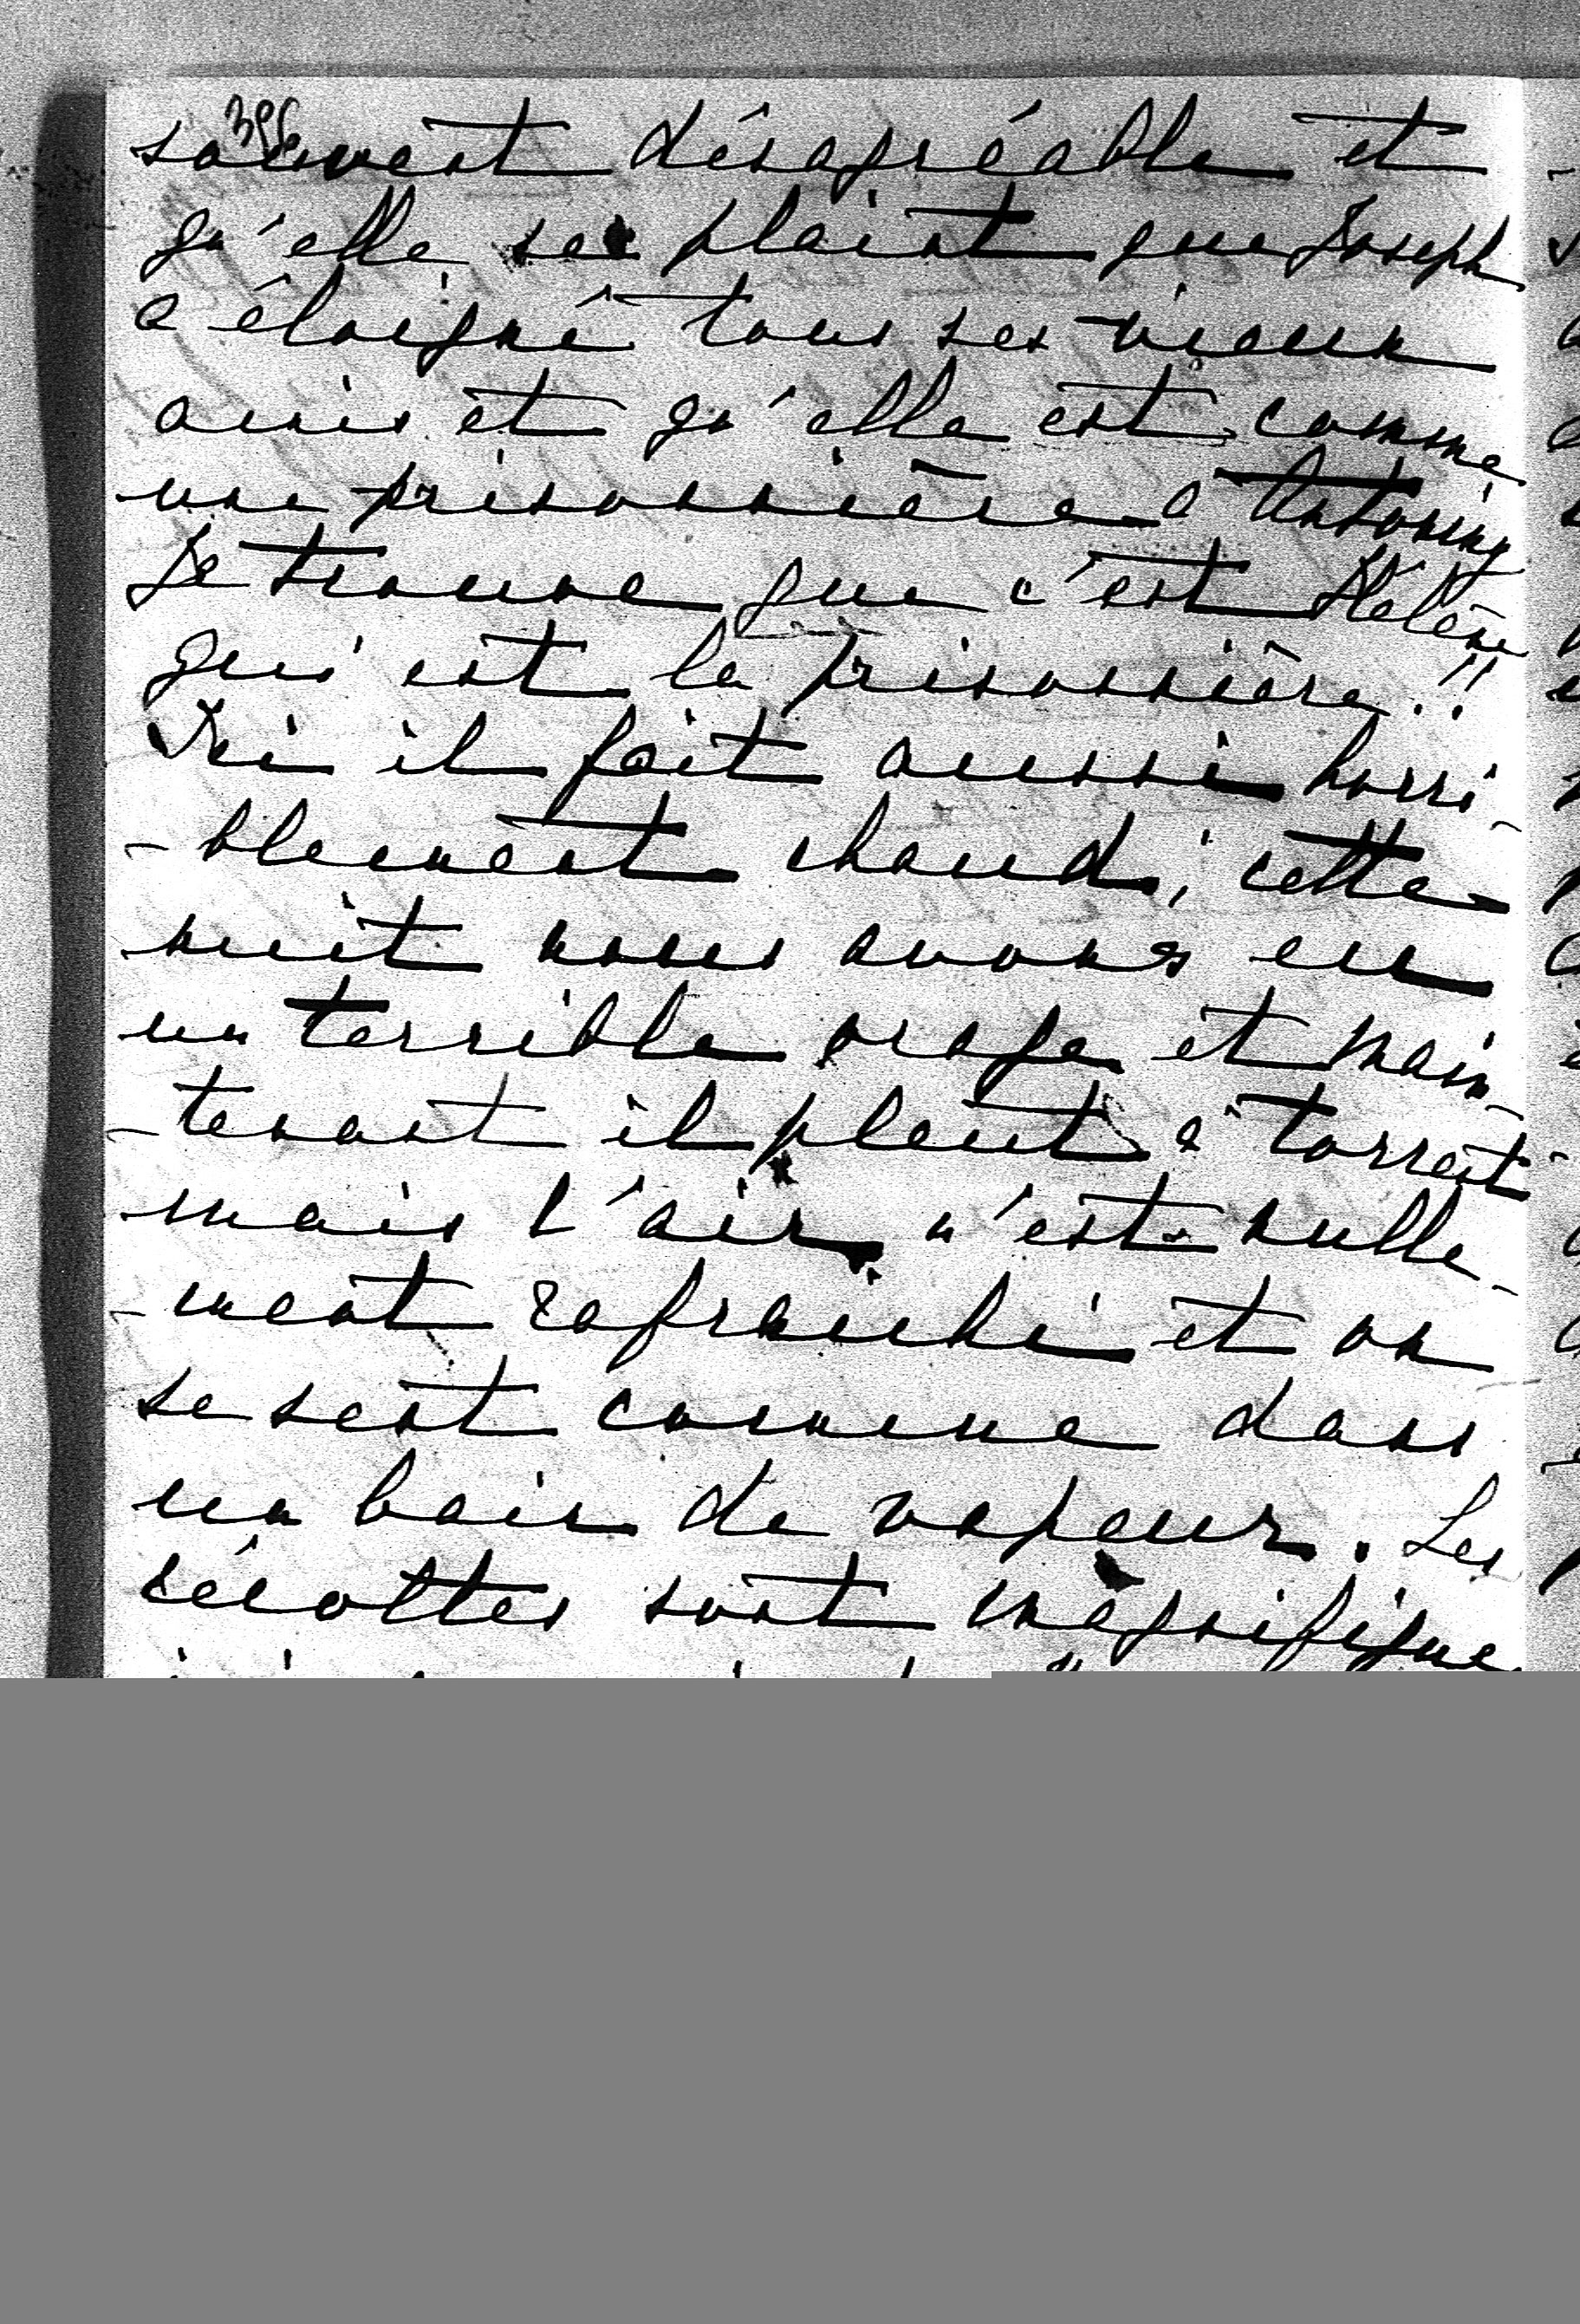 souvent désagréable et
qu'elle se plaint que Joseph
a éloigné tous ses vieux
amis et qu'elle est comme
une prisonnière a Antoniny
Je trouve que c'est Hélène
qui est la prisonnière!!
Ici il fait aussi horri-
-blement chaud, cette
nuit nous avons eu
un terrible orage et main-
-tenant il pleut à torrent
mais l'air n'est nulle-
-ment rafraichi et on
se sent comme dans
un bain de vapeur. Les
récoltes sont magnifique